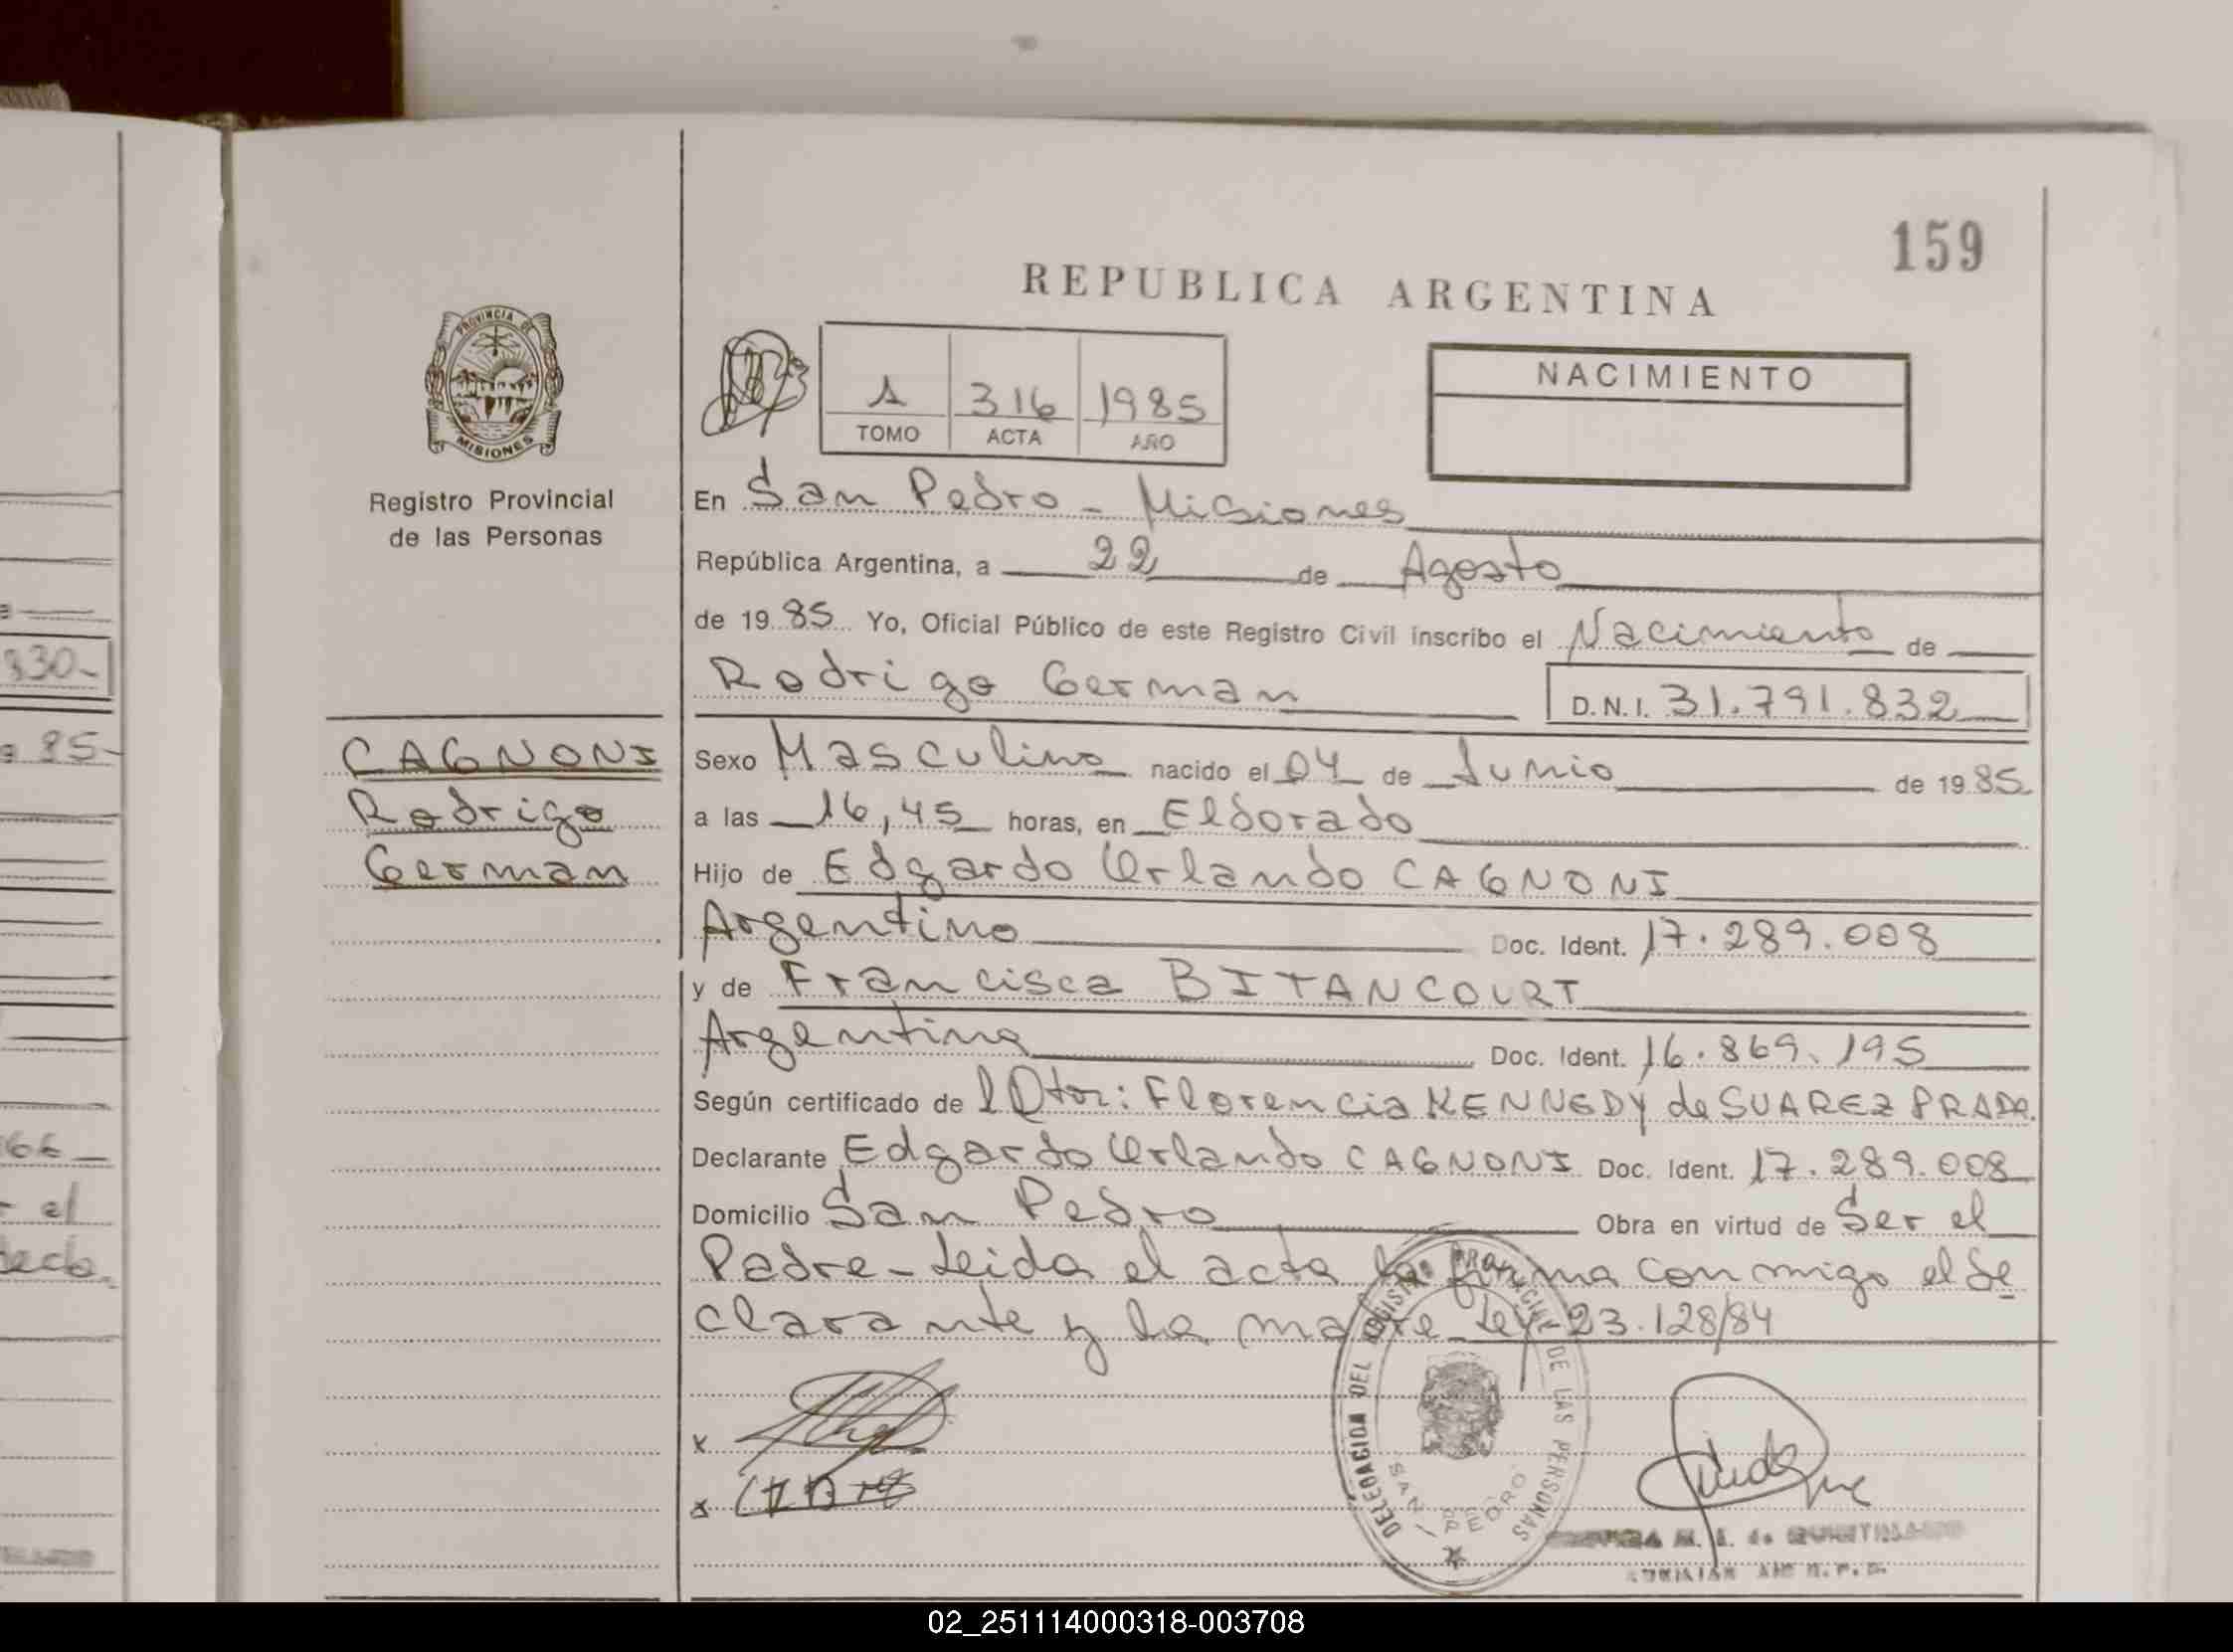 159
REPUBLICA ARGENTINA
PROVINCIA DE
MISIONES
Registro Provincial
de las Personas
1 316 1985
TOMO ACTA AÑO
NACIMIENTO
En San Pedro - Misiones
República Argentina, a 22 de Agosto
de 1985 Yo, Oficial Público de este Registro Civil inscribo el Nacimiento de
Rodrigo German D.N.I. 31.791.832
CAGNONI
Rodrigo
German
Sexo Masculino nacido el 04 de Junio de 1985
a las 16,45 horas, en Eldorado
Hijo de Edgardo Orlando CAGNONI
Argentino Doc. Ident. 17.289.008
y de Francisca BITANCOURT
Argentina Doc. Ident. 16.869.195
Según certificado de l Dtor: Florencia KENNEDY de SUAREZ PRADO.
Declarante Edgardo Orlando CAGNONI Doc. Ident. 17.289.008
Domicilio San Pedro Obra en virtud de Ser el
Padre - Leida el acta la firma conmigo el de
clarante y la madre - Ley - 23.128/84
DELEGACION DEL REGISTRO PROVINCIAL DE LAS PERSONAS
SAN PEDRO
M. I. de QUINTILIANO
830-
85-
66
el
02_251114000318-003708